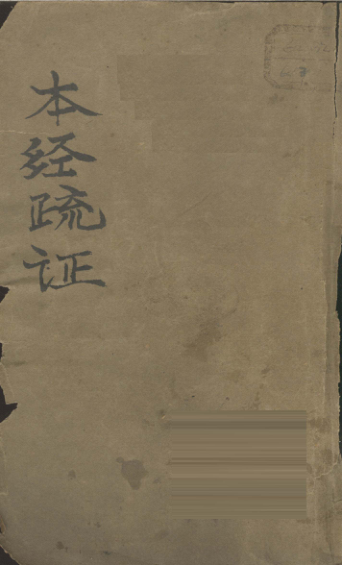 本经疏证